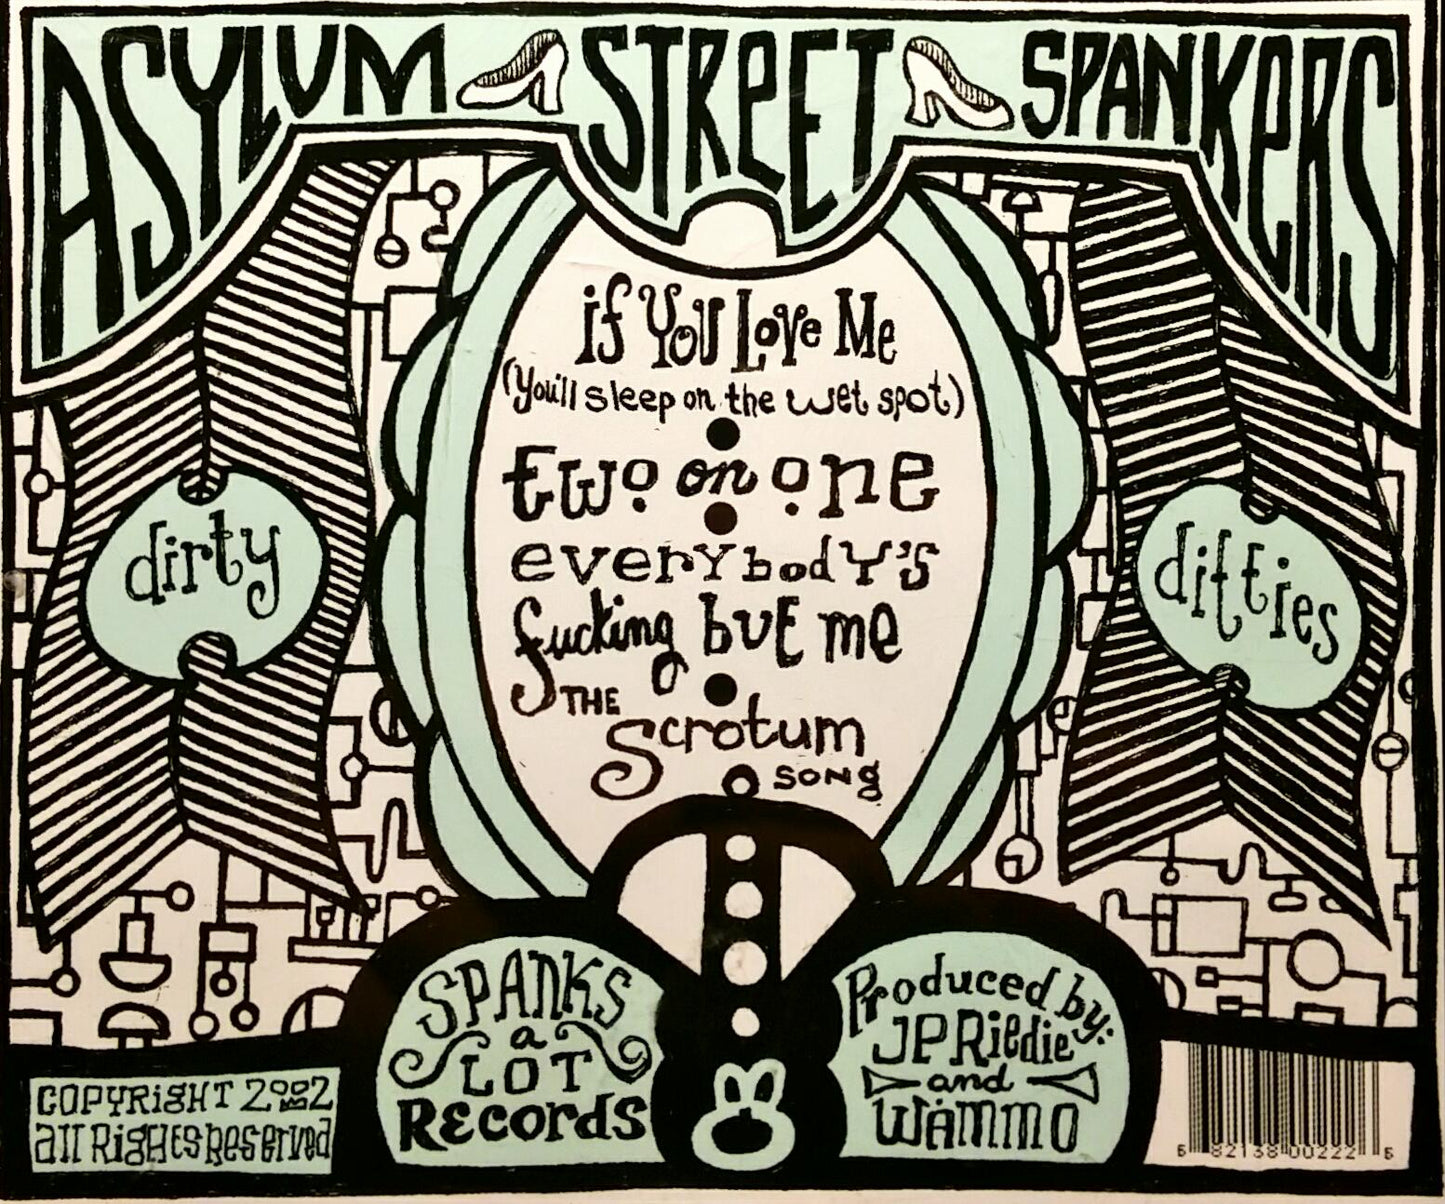 ASYLUM STREET SPANKERS
if You Love Me
(You'll sleep on the wet spot)
two on one
everybody's
fucking but me
THE
Scrotum
SONG
dirty
ditties
SPANKS
a
LOT
Records
Produced by:
JP Riedie
and
Wammo
COPYRIGHT 2002
All Rights Reserved
6 82138 00222 5